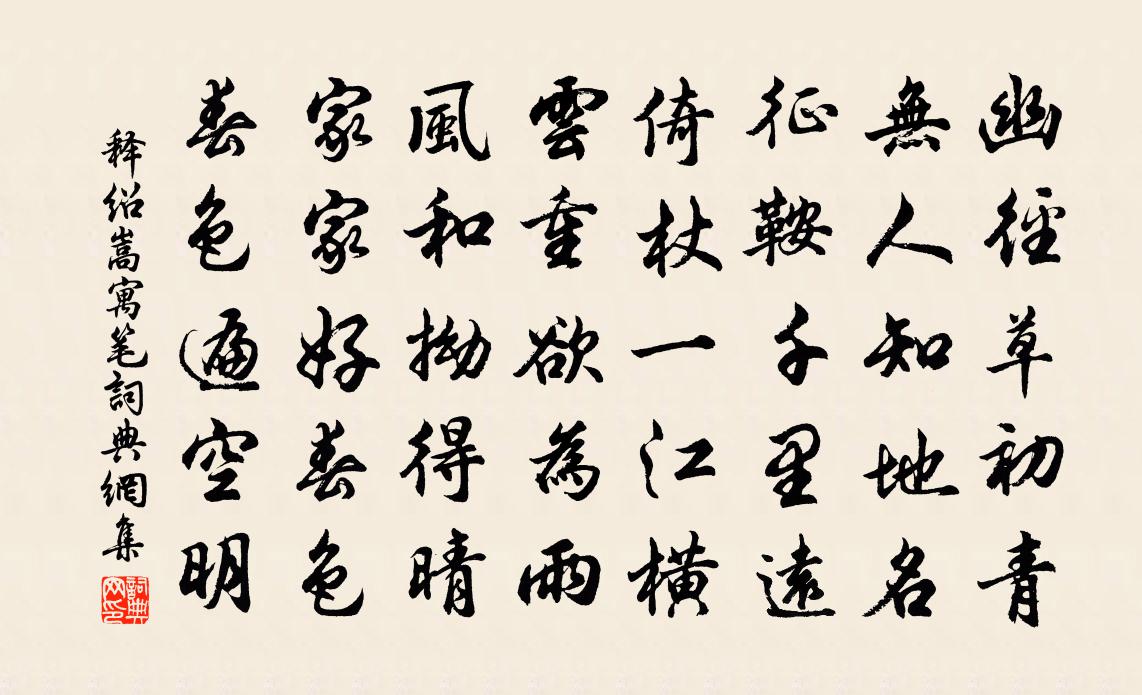 幽徑草初青
無人知地名
征鞍千里遠
倚杖一江橫
雲重欲為雨
風和拗得晴
家家好春色
春色遍空明
释绍嵩寓笔詞典網集
詞典網印